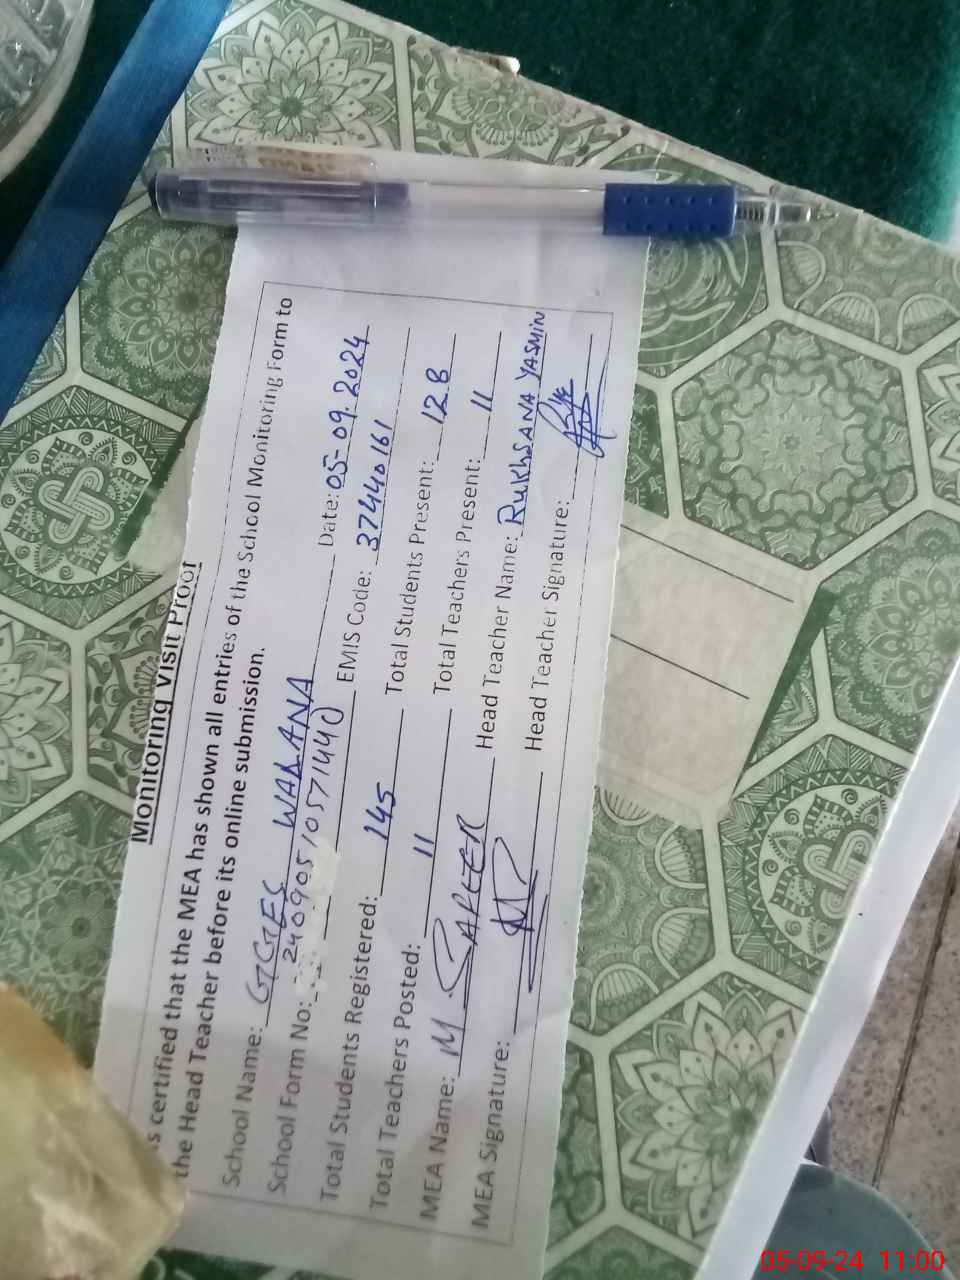 Monitoring Visit Proof
is certified that the MEA has shown all entries of the School Monitoring Form to
the Head Teacher before its online submission.
School Name: GGES WARANA Date: 05-09.2024
School Form No: 24090510571440 EMIS Code: 37440161
Total Students Registered: 145 Total Students Present: 128
Total Teachers Posted: 11 Total Teachers Present: 11
MEA Name: M. SAFEER Head Teacher Name: RUKhSANA YASMIN
MEA Signature: Head Teacher Signature:
05-09-24 11:00